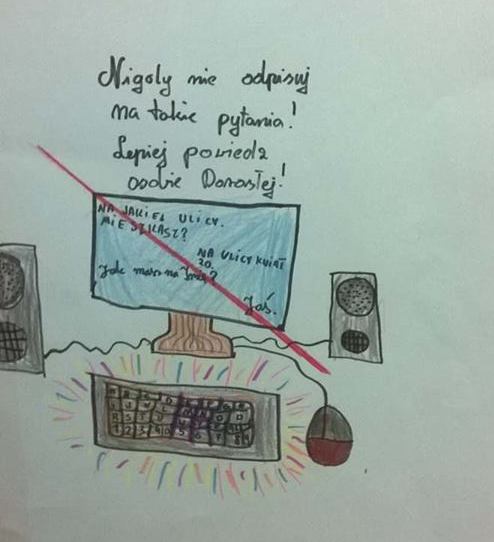 Nigdy nie odpisuj
na takie pytania!
Lepiej powiedz
osobie Dorosłej!
NA JAKIEJ ULICY.
MIESZKASZ?
NA ULICY KWIAT
20.
Jak masz na Imię?
Jaś.